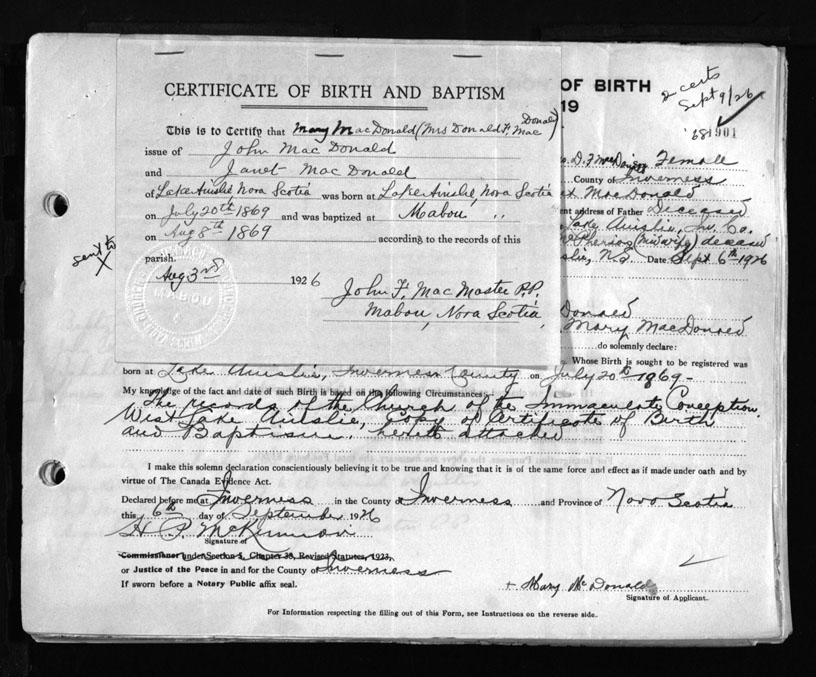 CERTIFICATE OF BIRTH AND BAPTISM
This is to Certify that Mary MacDonald (Mrs Donald F. Mac Donald)
issue of John Mac Donald
and Janet Mac Donald
of Lake Ainslie Nova Scotia was born at Lake Ainslie, Nova Scotia
on July 20th 1869 and was baptized at Mabou ,,
on Aug 8th 1869 according to the records of this
parish.
sent to X
Aug 3rd 1926
John F. MacMaster P.P.
Mabou, Nova Scotia
MABOU
OF BIRTH
19
2 certs
Sept 9/26
681901
D. F. MacDonald Female
County of Inverness
Mac Donald
ent address of Father Deceased
Lake Ainslie, Inv. Co.
McPherson (Midwife) deceased
N.S. Date Sept 6th 1926
Donald
Mary MacDonald
do solemnly declare:
Whose Birth is sought to be registered was
born at Lake Ainslie, Inverness County on July 20th 1869-
My knowledge of the fact and date of such Birth is based on the following Circumstances:
The records of the Church of the Immaculate Conception,
West Lake Ainslie, Copy of Certificate of Birth
and Baptism, herewith attached
I make this solemn declaration conscientiously believing it to be true and knowing that it is of the same force and effect as if made under oath and by
virtue of The Canada Evidence Act.
Declared before me at Inverness in the County of Inverness and Province of Nova Scotia
this 6th day of September 1926
H. P. McKinnon
Signature of
Commissioner under Section 3, Chapter 38, Revised Statutes, 1923,
or Justice of the Peace in and for the County of Inverness
If sworn before a Notary Public affix seal.
+ Mary McDonald
Signature of Applicant.
For Information respecting the filling out of this Form, see Instructions on the reverse side.